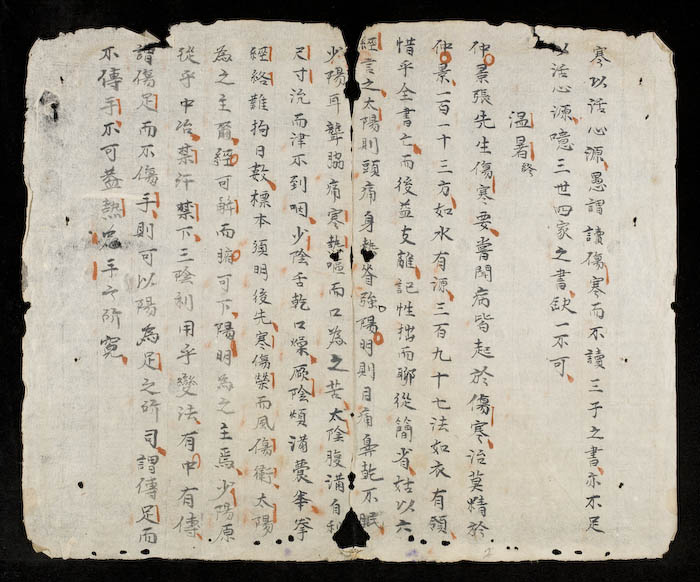 寒以活心源愚謂讀傷寒而不讀三子之書亦不足
以活心源噫三世四家之書欽一不可
温暑終
仲景張先生傷寒要嘗聞病皆起於傷寒治莫精於
仲景一百一十三方如水有源三百九十七法如衣有領
惜乎全書亡而後益支離記性拙而聊從簡省姑以六
經言之太陽則頭痛身熱脊強陽明則目痛鼻乾不眠
少陽耳聾脇痛寒熱嘔而口為之苦太陰腹滿自利
尺寸沉而津不到咽少陰舌乾口燥厥陰煩滿囊拳
經絡難拘日数標本須明後先寒傷榮而風傷衛太陽
為之主爾經可解而腑可下陽明為之主焉少陽原
從乎中治禁汗禁下三陰利用乎變法有中有傳
謂傷足而不傷手則可以陽為足之所司謂傳足而
不傳手不可盖熱忌手之所寃